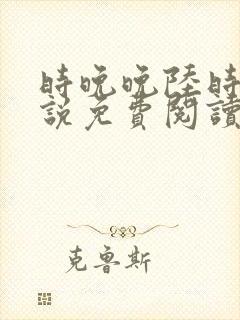 時晚晚陸時
說免費閱讀
克魯斯